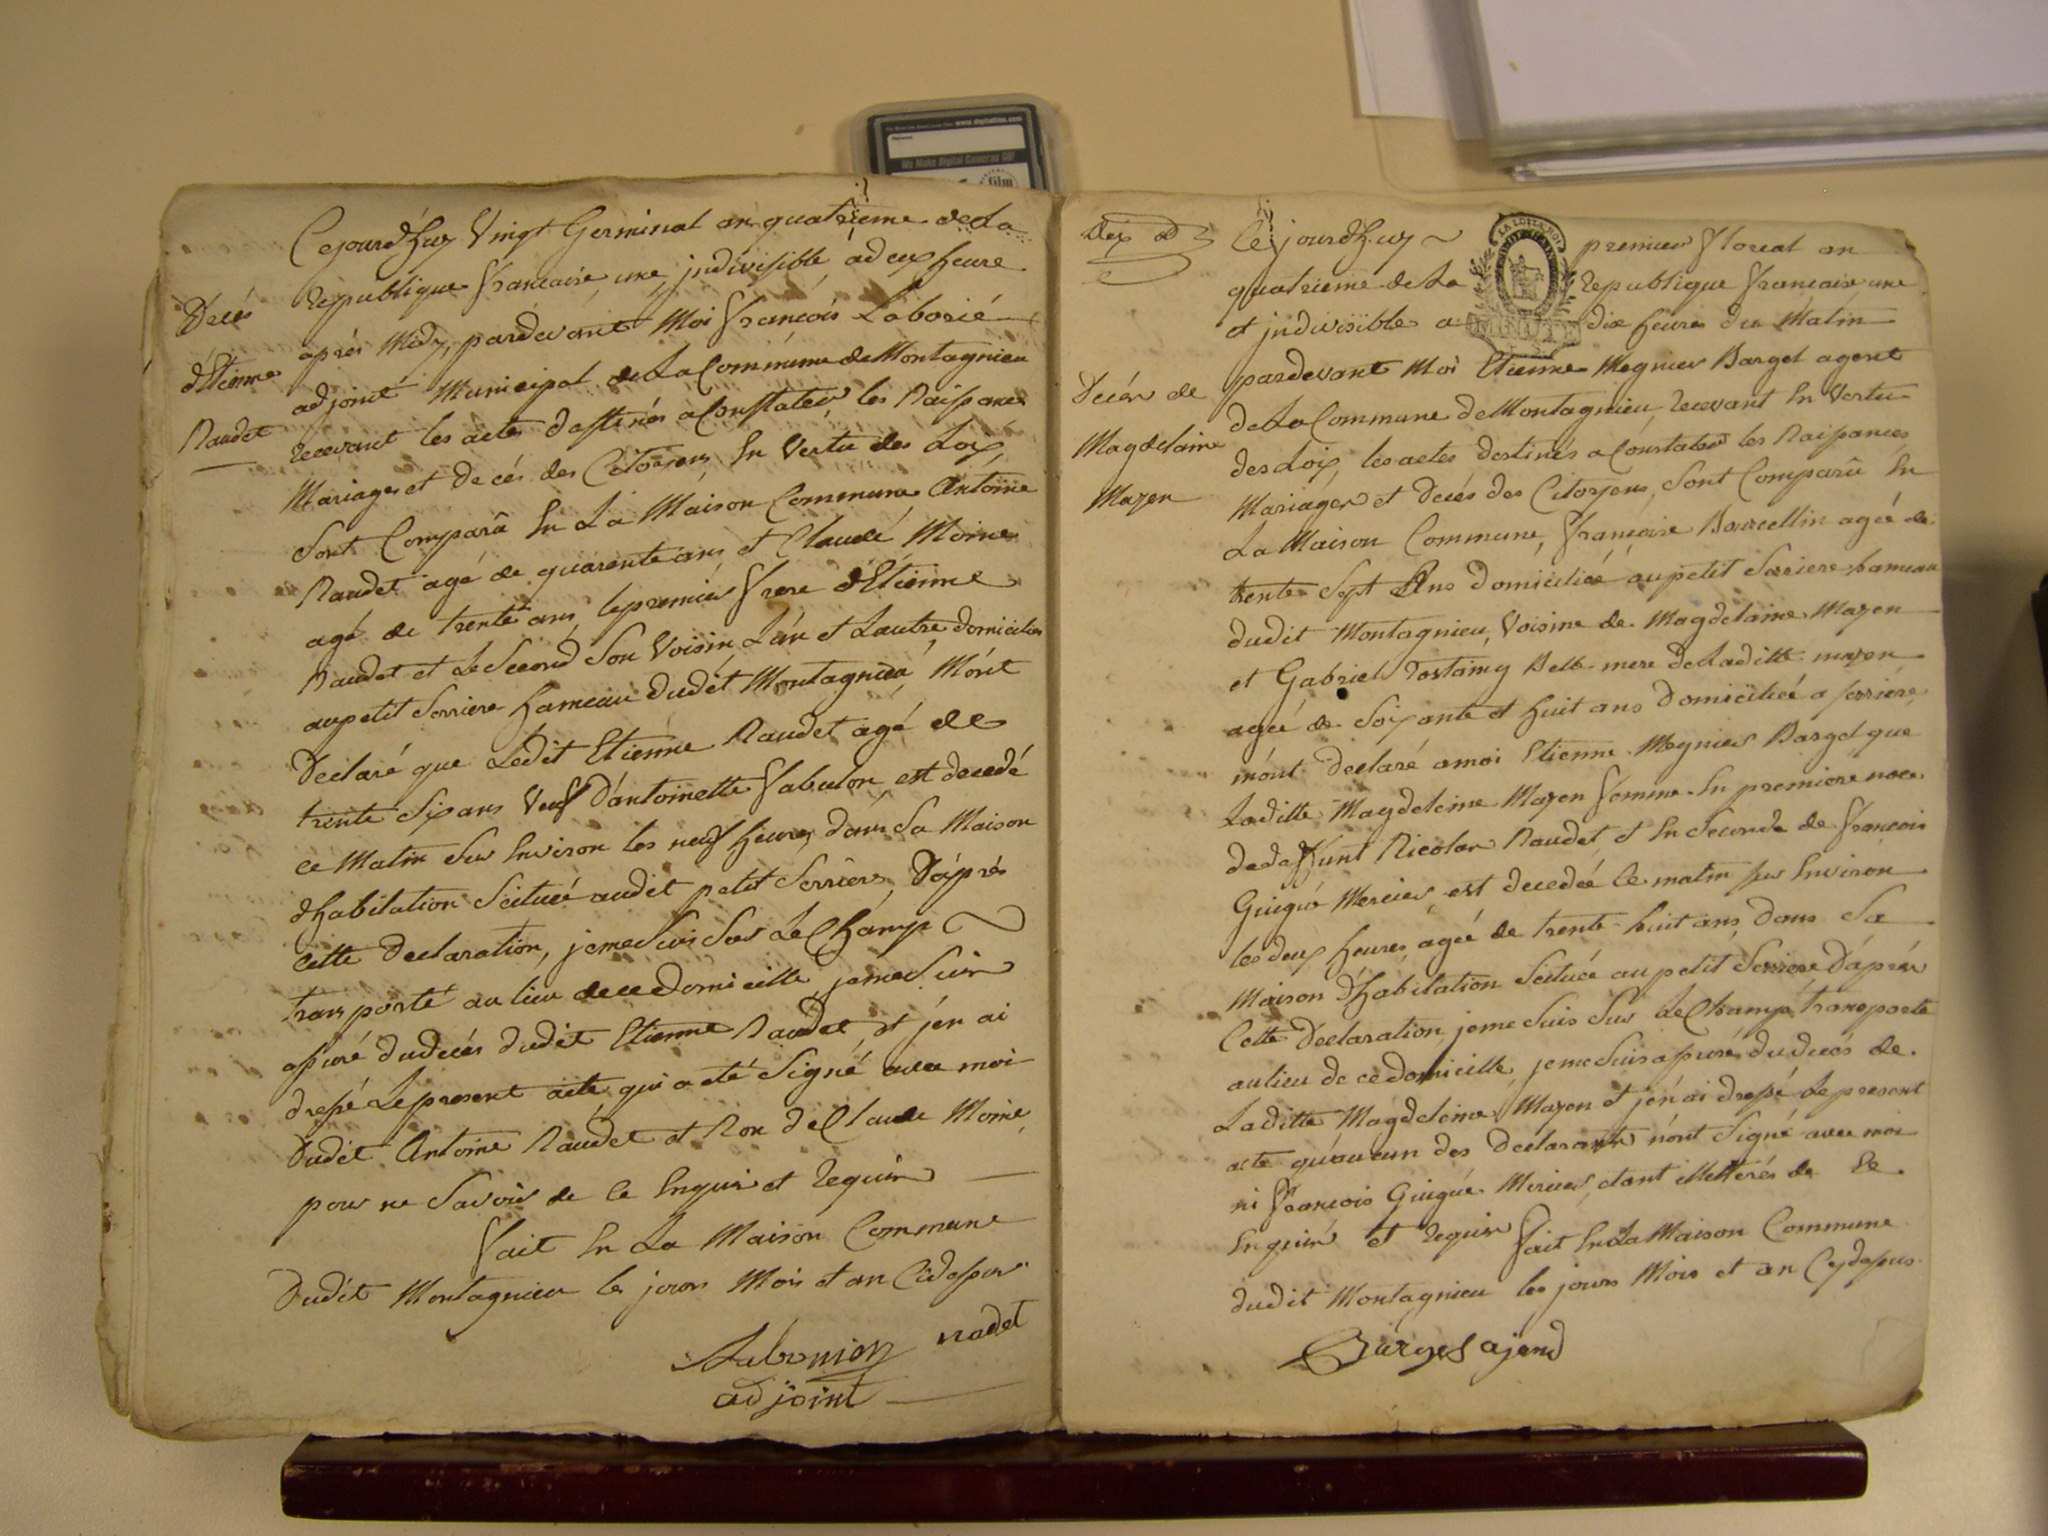 www.digitalfilm.com
We Make Digital Cameras GO!
film
Cejourd'huy Vingt Germinal an quatrieme de La
Republique francaise une, indivisible a deux heure
après Midy, pardevant Moi francois Laborié
adjoint Municipal de La Commune de Montagnieu
recevant les actes destinés a Constater les Naissances
Mariages et decés des Citoyens En Vertu des Loix,
Sont Comparû En La Maison Commune Antoine
Naudet agé de quarente ans et Claude Moine
agé de trente ans, le premier frere d'Etienne
Naudet et Le Second Son Voisin, L'un et Lautre domiciliés
au petit Serriere hameau dudit Montagnieu, M'ont
Declaré que Ledit Etienne Naudet agé de
trente Six ans Veuf D'antoinette Vabulon, est decedé
ce Matin Sur Environ les neuf heures, dans Sa Maison
d'habitation Scituée audit petit Serriere, D'après
Cette Declaration, je me Suis Sur Le Champ
transporté au lieu de ce Domicille, je me Suis
assuré du decés dudit Etienne Naudet et j'en ai
dressé Le present acte qui a eté Signé avec moi
Dudit Antoine Naudet et Non de Claude Moine
pour ne Savoir de Ce Enquis et Requis
fait En La Maison Commune
Dudit Montagnieu le jour Mois et an Cidessus
nadet
adjoint
Décés
d'Etienne
Naudet
dix
Cejourdhuy premier floreal an
quatrieme de La Republique francaise une
et indivisible a dix heures du Matin
pardevant Moi Etienne Megnier Barget agent
de La Commune de Montagnieu, recevant En Vertu
des Loix, les actes destinés a Constater les Naissances
Mariages et Decés des Citoyens, Sont Comparû En
La Maison Commune, françoise Bourcellin agée de
trente Sept Ans domiciliée au petit Serriere hameau
dudit Montagnieu, Voisine de Magdelaine Mazen
et Gabriel Tostamy Belle-mere de Laditte mazen
agée de Soixante et huit ans Domiciliée a Serriere,
m'ont Declaré a moi Etienne Megnier Barget que
Laditte Magdeleine Mazen femme En premiere noce
de deffunt Nicolas Naudet, et En Seconde de francois
Guigue Mercier, est decedée Ce matin Sur Environ
les deux heures, agée de trente-huit ans, dans Sa
Maison D'habitation Scituée au petit Serriere, D'après
Cette Declaration, je me Suis Sur Le Champ, transporté
au lieu de ce domicille, je me Suis assuré du decés de
Laditte Magdeleine Mazen et j'en ai dressé Le present
acte qu'aucun des Declarants n'ont Signé avec moi
ni francois Guigue Mercier, etant illettérés de Ce
Enquis et Requis fait En La Maison Commune
dudit Montagnieu les jours Mois et an Cydessus
Barget ajend
Decés de
Magdelaine
Mazen
LA LOI ET LE ROI
MINUTE